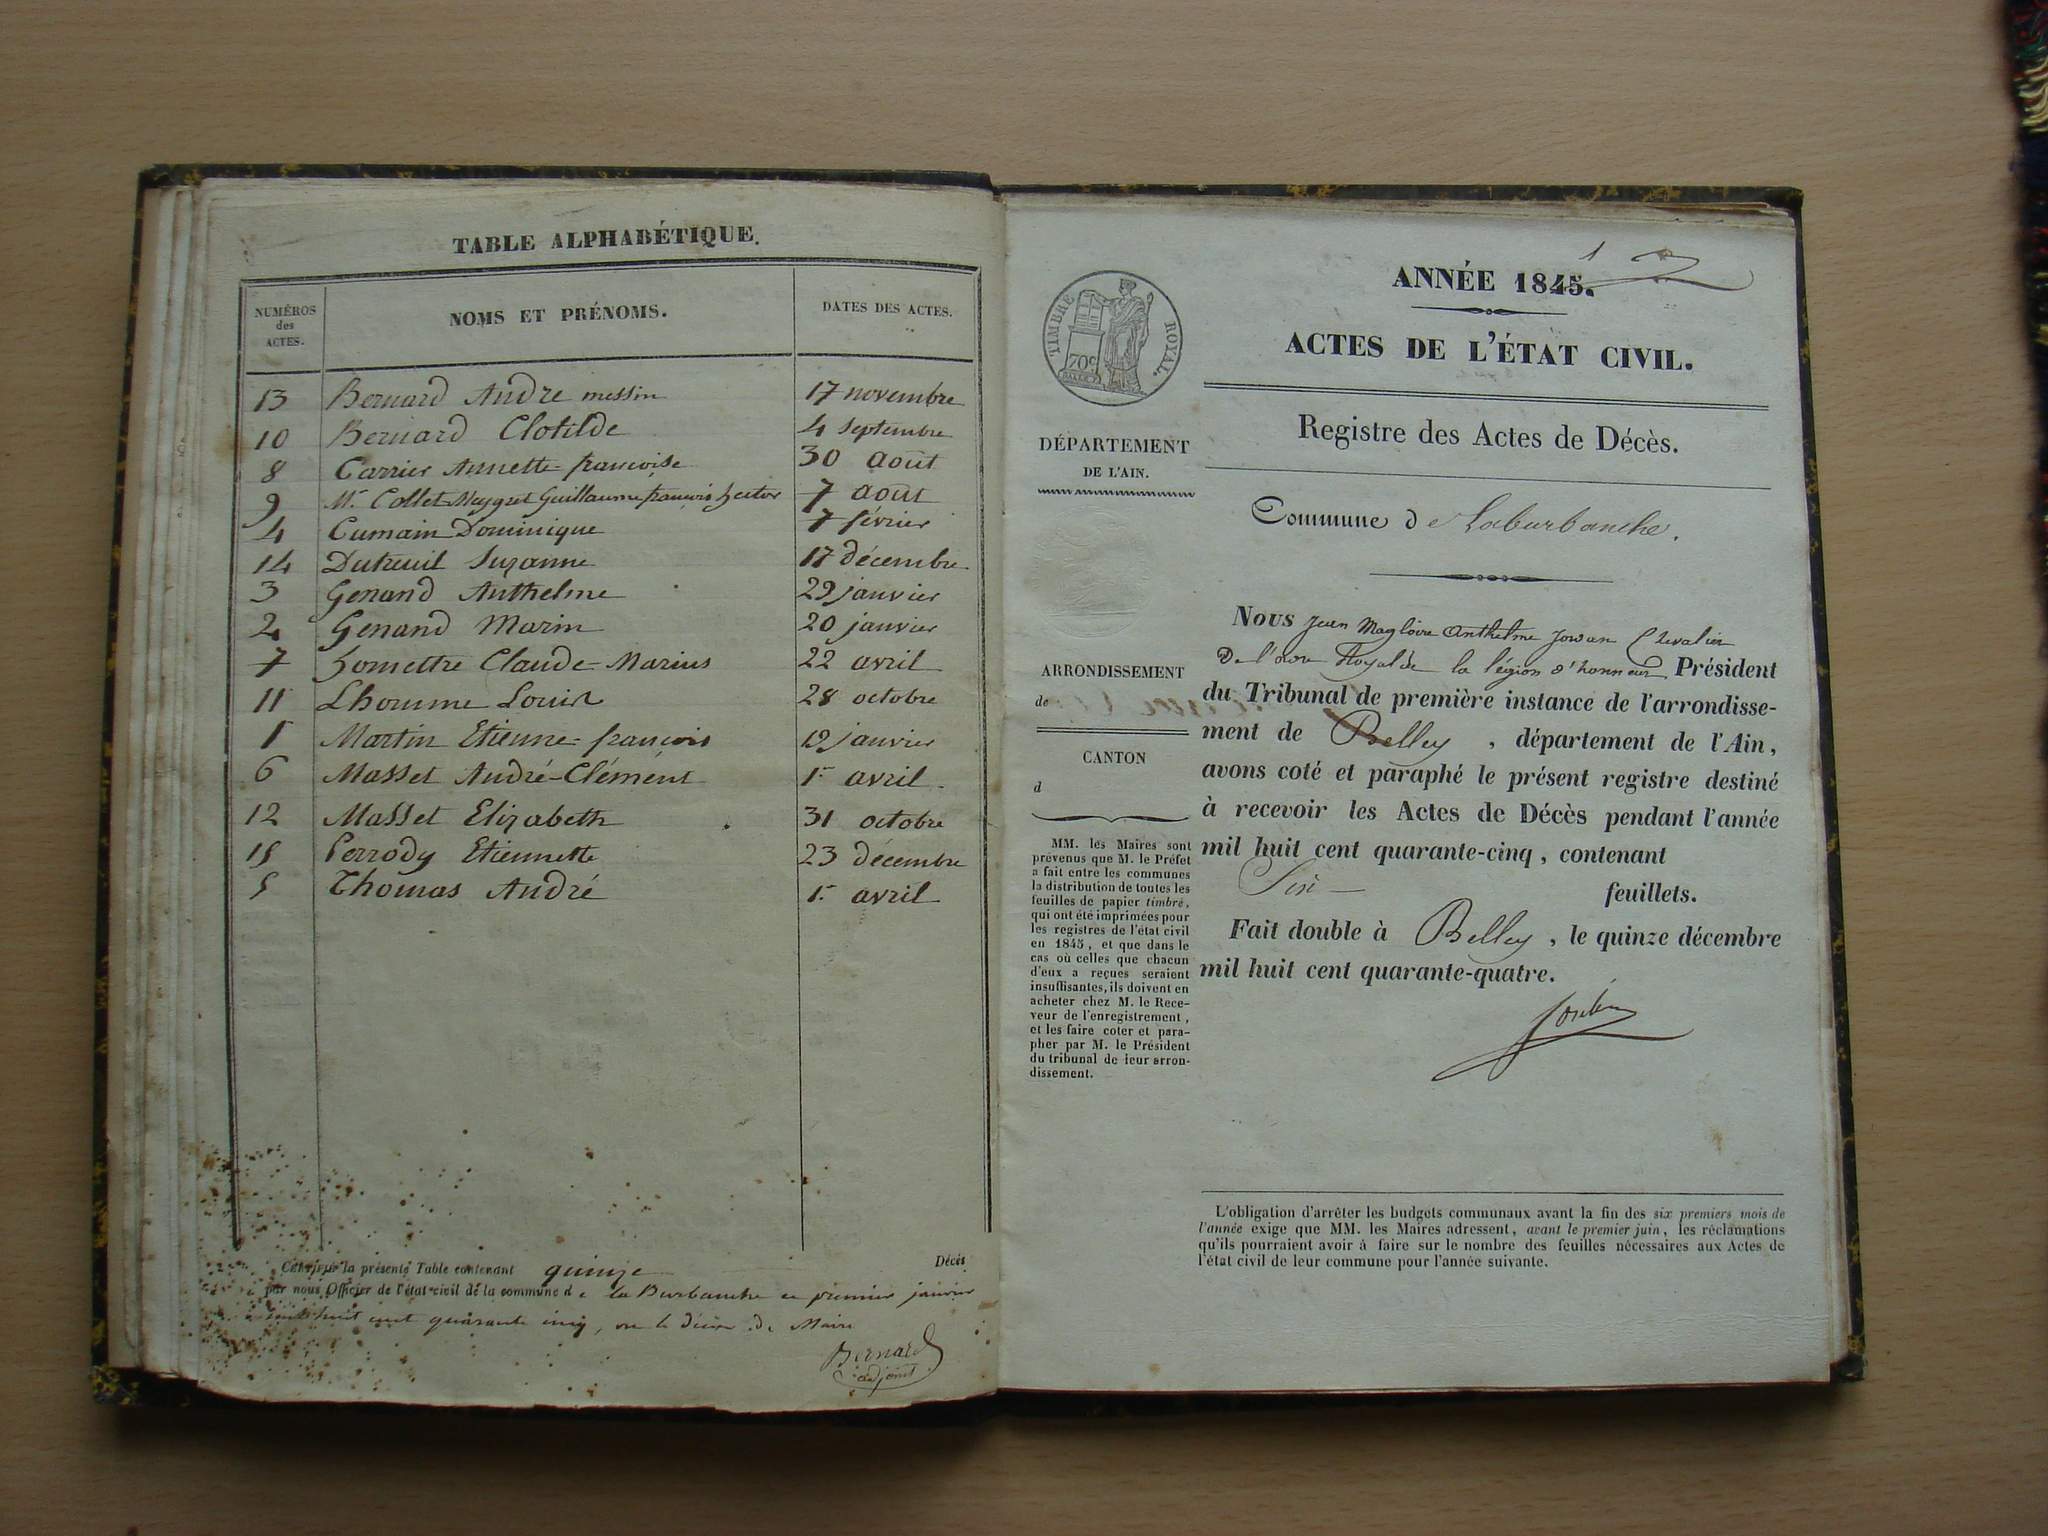 TABLE ALPHABÉTIQUE.
NUMÉROS des ACTES. NOMS ET PRÉNOMS. DATES DES ACTES.
13 Bernard André messin 17 novembre
10 Bernard Clotilde 4 septembre
8 Carrier Annette françoise 30 août
9 Mr Collet Meygret Guillaume françois hector 7 août
4 Cumain Dominique 7 février
14 Dutreuil Suzanne 17 décembre
3 Genand Anthelme 29 janvier
2 Genand Marin 20 janvier
7 homettre Claude-Marius 22 avril
11 Lhomme Louis 28 octobre
1 Martin Etienne-françois 12 janvier
6 Masset André-Clément 1er avril
12 Masset Elizabeth 31 octobre
15 Perrody Etiennette 23 décembre
5 Thomas André 1er avril
Certifié la présente Table contenant quinze Décès
par nous Officier de l'état-civil de la commune de la Burbanche ce premier janvier
mil huit cent quarante cinq, Maire
Bernard
adjoint
1
ANNÉE 1845.
ACTES DE L'ÉTAT CIVIL.
Registre des Actes de Décès.
Commune de Laburbanche.
TIMBRE ROYAL.
70c
DÉPARTEMENT
DE L'AIN.
ARRONDISSEMENT
de
CANTON
d
MM. les Maires sont
prévenus que M. le Préfet
a fait entre les communes
la distribution de toutes les
feuilles de papier timbré,
qui ont été imprimées pour
les registres de l'état civil
en 1845, et que dans le
cas où celles que chacun
d'eux a reçues seraient
insuffisantes, ils doivent en
acheter chez M. le Rece-
veur de l'enregistrement,
et les faire coter et para-
pher par M. le Président
du tribunal de leur arron-
dissement.
Nous Jean Magloire Anthelme Chevalier
De l'ordre Royal de la légion d'honneur Président
du Tribunal de première instance de l'arrondisse-
ment de Belley, département de l'Ain,
avons coté et paraphé le présent registre destiné
à recevoir les Actes de Décès pendant l'année
mil huit cent quarante-cinq, contenant
Six feuillets.
Fait double à Belley, le quinze décembre
mil huit cent quarante-quatre.
L'obligation d'arrêter les budgets communaux avant la fin des six premiers mois de
l'année exige que MM. les Maires adressent, avant le premier juin, les réclamations
qu'ils pourraient avoir à faire sur le nombre des feuilles nécessaires aux Actes de
l'état civil de leur commune pour l'année suivante.